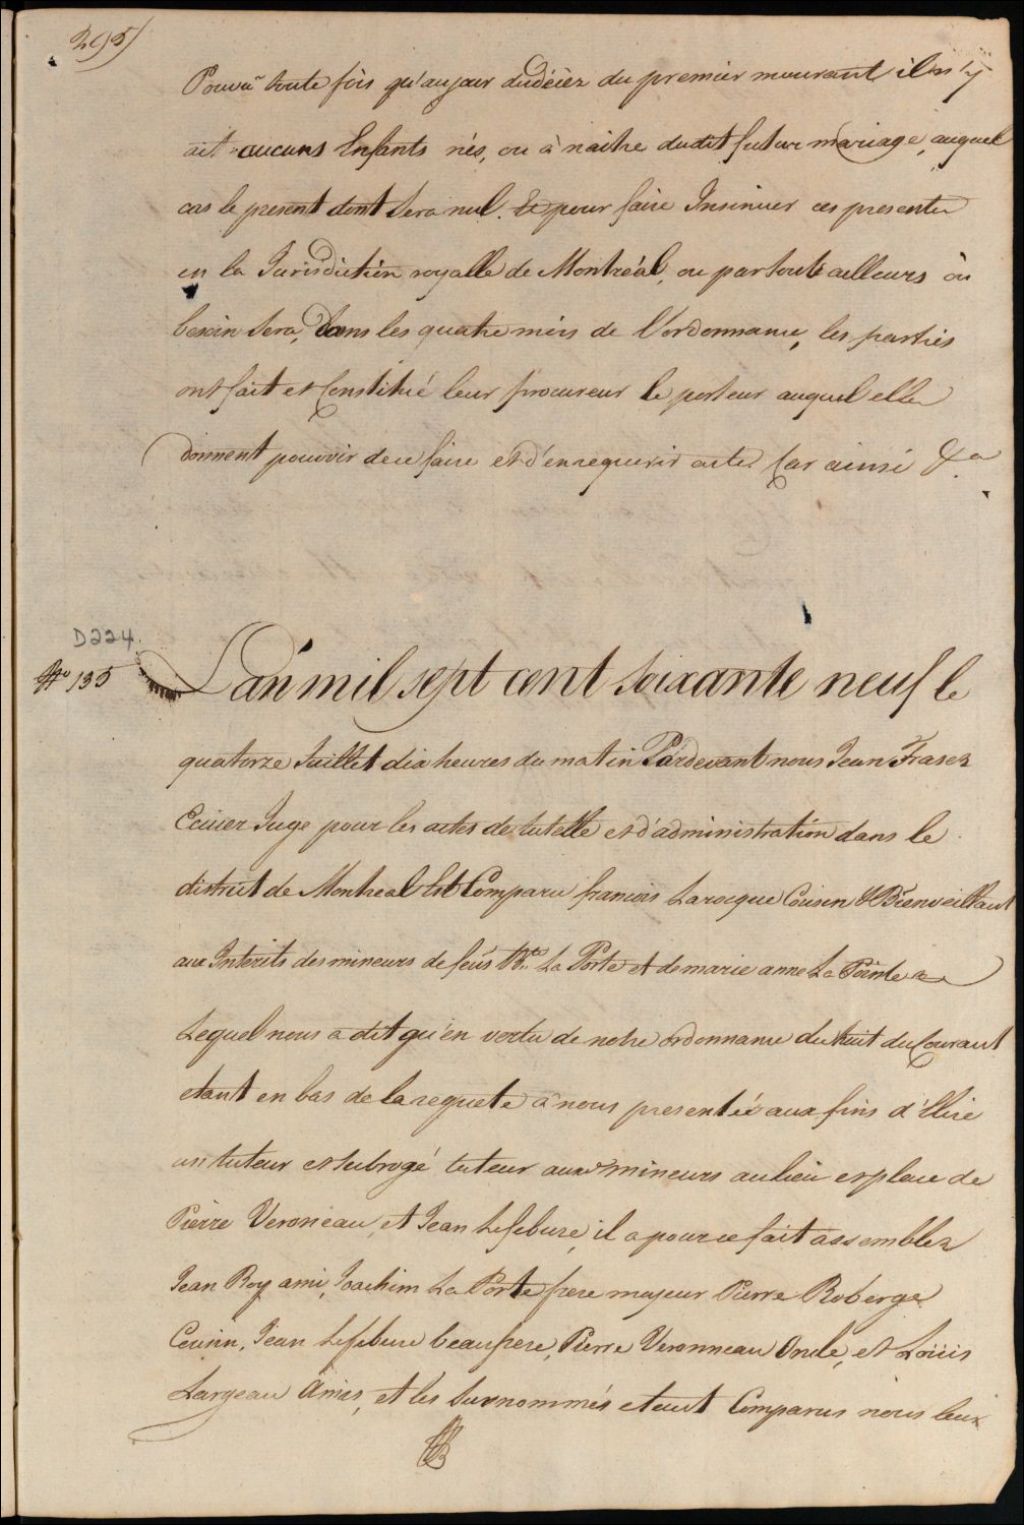 295)
Pourvû toute fois qu'au jour du décéz du premier mourant il n'y
ait aucuns Enfants nés, ou à naitre dudit futur mariage, auquel
cas le present dont Sera nul. Et pour faire Insinuer ces presentes
en la Jurisdiction royalle de Montréal, ou partoute ailleurs où
besoin Sera, Dans les quatre mois de l'ordonnance, les parties
ont fait et Constitué leur procureur le porteur auquel elles
donnent pouvoir de ce faire et d'en requerir acte Car ainsi &a
D224.
No 135
L'an mil sept cent soixante neuf le
quatorze Juillet dix heures du matin Pardevant nous Jean Fraser
Ecuier Juge pour les actes de tutelle et d'administration dans le
district de Montreal Est Comparu francois Larocque Cousin & Bienveillant
aux Interits des mineurs de feus Bte La Porte et de marie anne La Pointe
Lequel nous a dit qu'en vertu de notre ordonnance du huit du Courant
etant en bas de la requete à nous presentée aux fins d'Elire
un tuteur et subrogé tuteur aux mineurs au lieu et place de
Pierre Veronneau, et Jean Lefebure, il a pour ce fait assembler
Jean Roy ami, Joachim La Porte frere majeur Pierre Roberge
Cousin, Jean Lefebure beaufrere, Pierre Veronneau Oncle, et Loüis
Largeau Amis, et les Surnommés etant Comparus nous leur